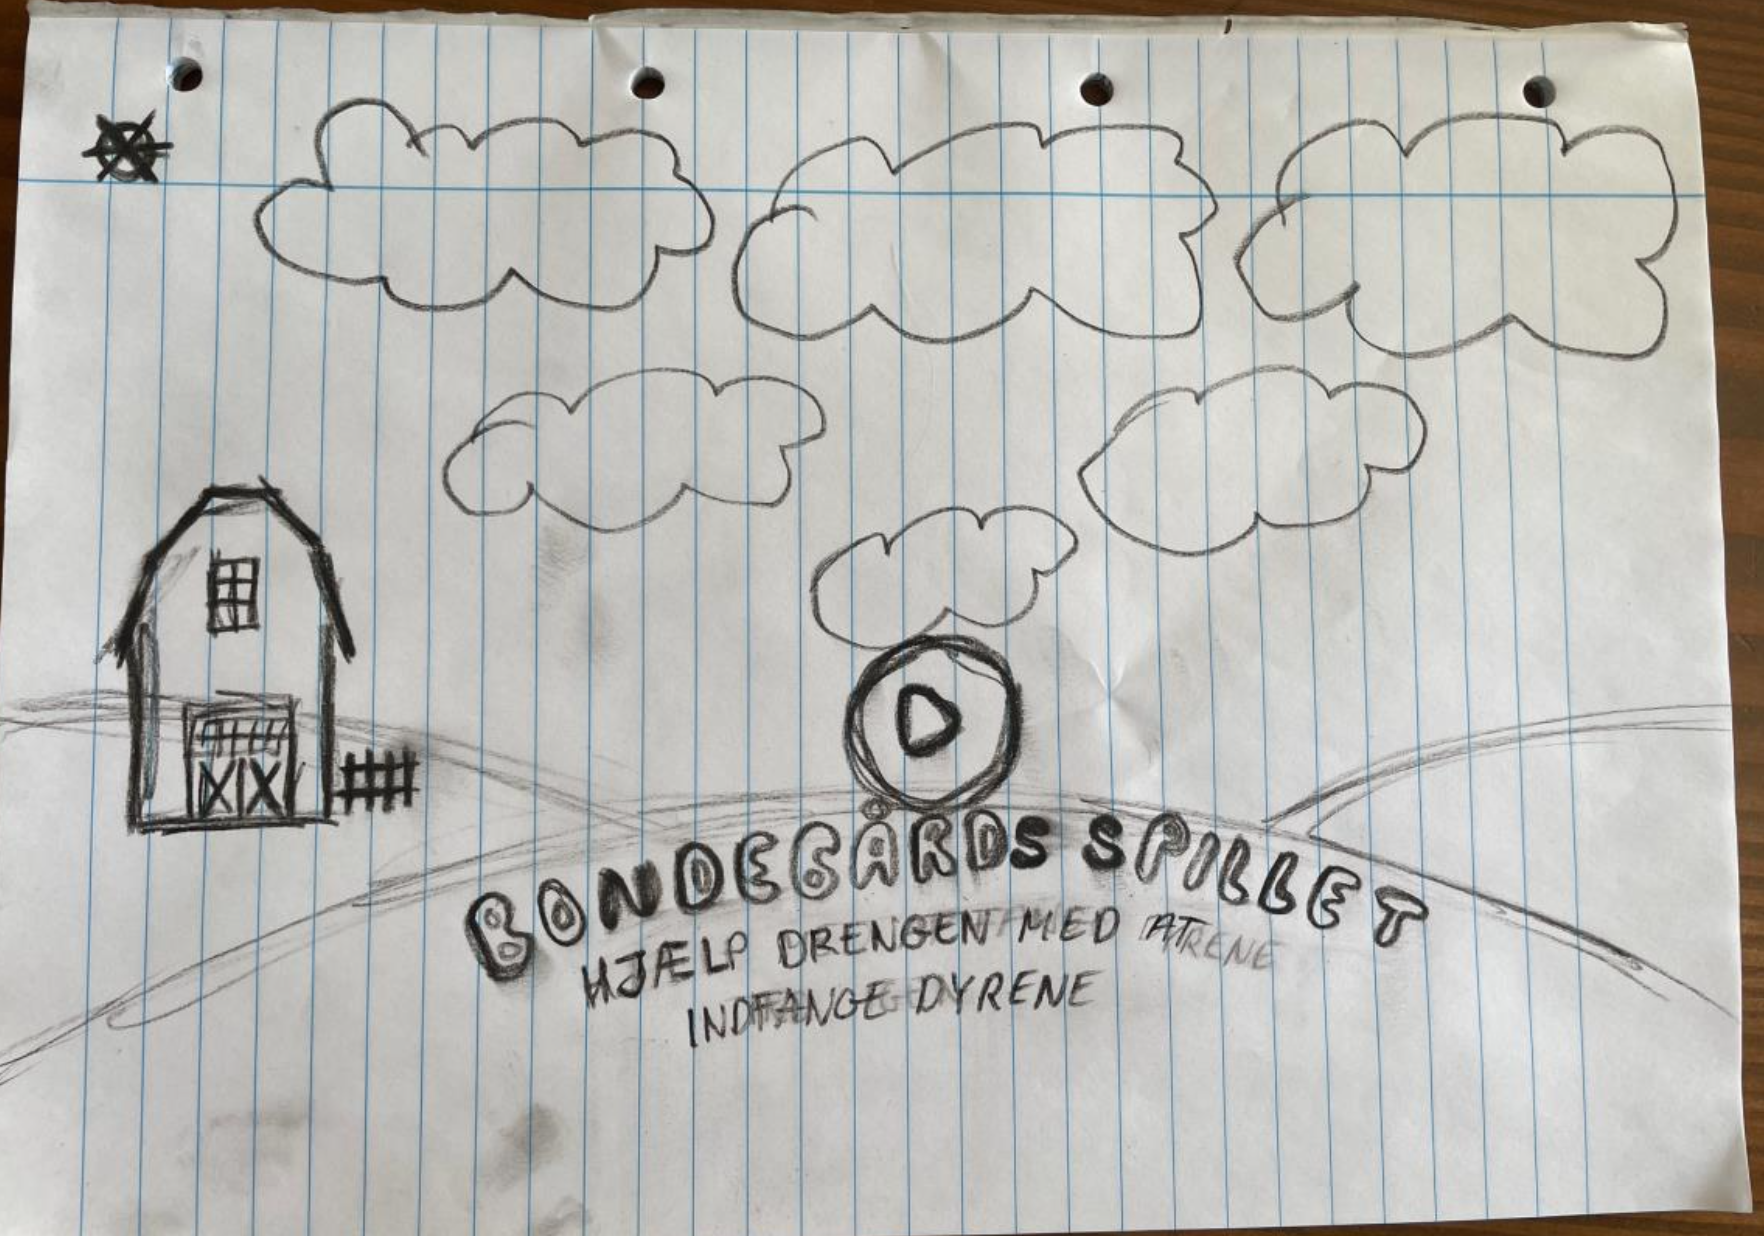 BONDEGÅRDS SPILLET
HJÆLP DRENGEN MED AT
INDFANGE DYRENE